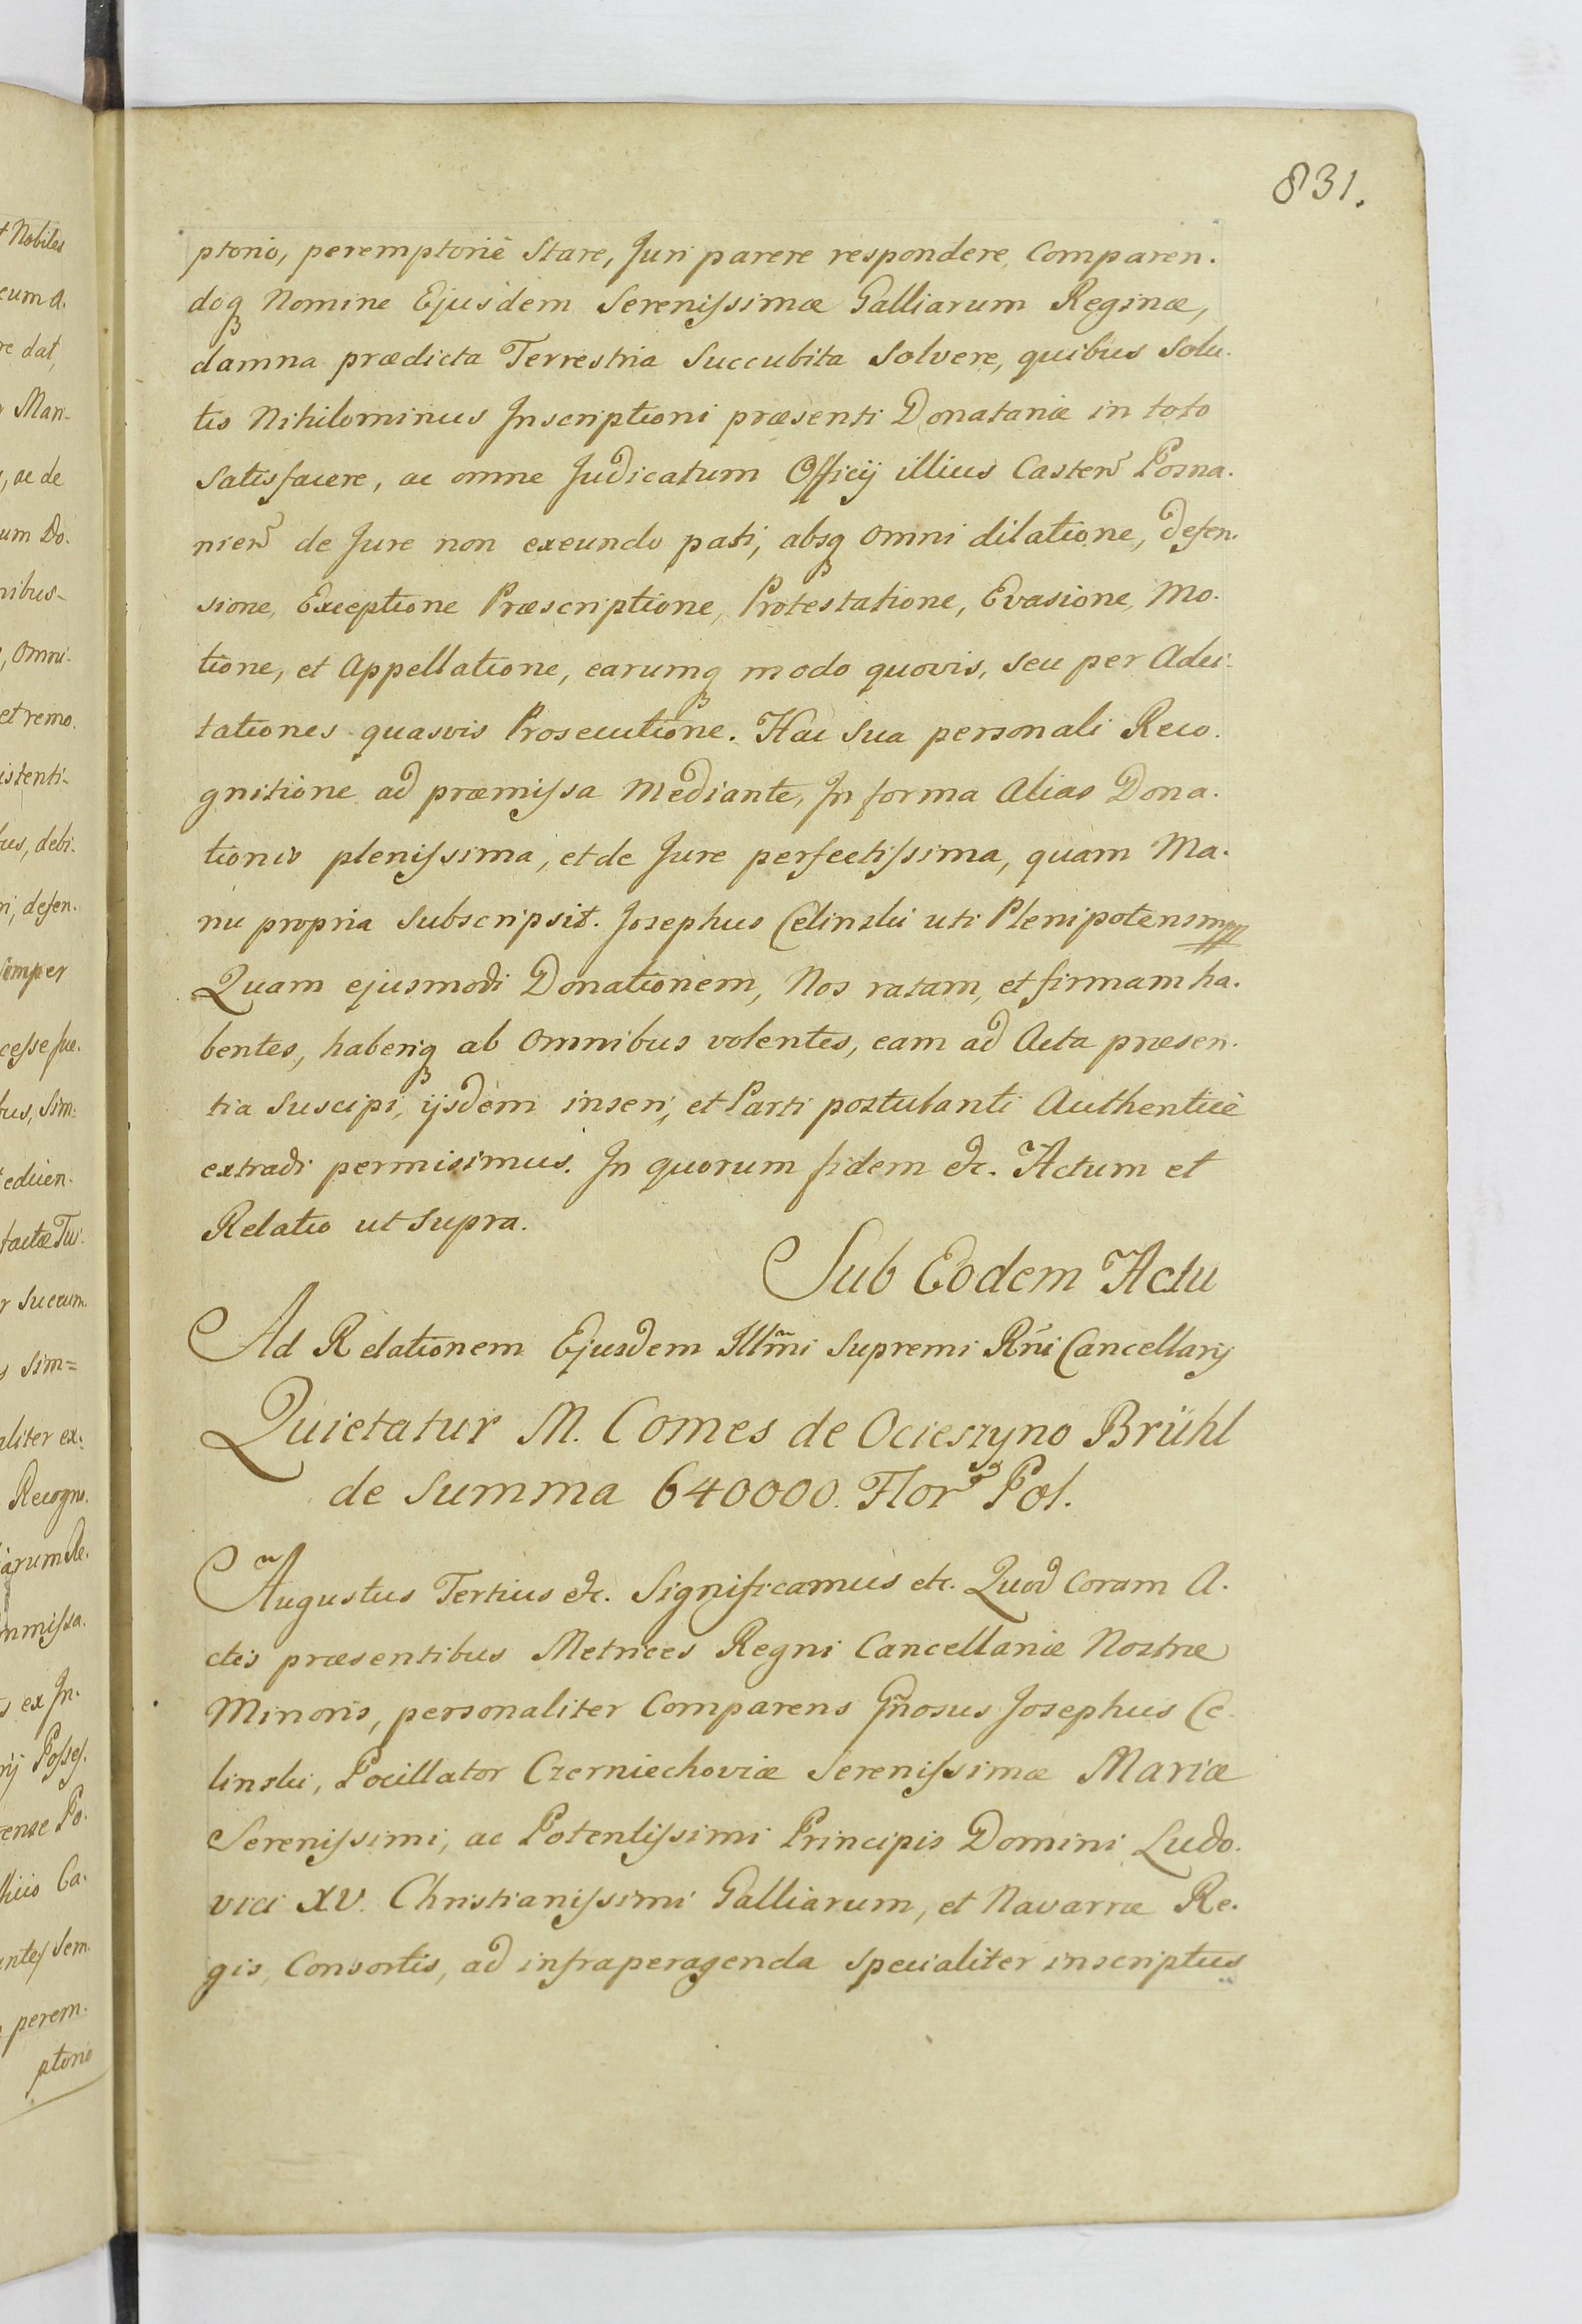 831.
ptorio, peremptoriè Stare, Juri parere respondere, Comparen.
doq₃ Nomine Ejusdem Serenissimæ Galliarum Reginæ,
damna prædicta Terrestria Succubita Solvere, quibus Solu.
tis Nihilominus Inscriptioni præsenti Donatariæ in toto
Satisfacere, ac omne Judicatum Officij illius Castren̄ Posna.
nien̄ de Jure non exeundo pati, absq₃ omni dilatione, defen.
sione, Exceptione Præscriptione, Protestatione, Evasione, Mo.
tione, et Appellatione, earumq₃ modo quovis, seu per Adci.
tationes quasvis Prosecutione. Hac Sua personali Reco.
gnitione ad præmissa Mediante, In forma alias Dona.
tionis plenissima, et de Jure perfectissima, quam Ma.
nu propria Subscripsit. Josephus Celinski uti Plenipotens mpp
Quam ejusmodi Donationem, Nos ratam, et firmam ha.
bentes, haberiq₃ ab Omnibus volentes, eam ad Acta præsen.
tia Suscipi, ijsdem inseri, et Parti postulanti Authenticè
extradi permisimus. In quorum fidem etc. Actum et
Relatio ut Supra.
Sub Eodem Actu
Ad Relationem Ejusdem Illm̃i Supremi Rñi Cancellarij
Quietatur M. Comes de Ocieszyno Brühl
de Summa 640000. Flor̄ Pol.
Augustus Tertius etc. Significamus etc. Quod Coram A.
ctis præsentibus Metrices Regni Cancellariæ Nostræ
Minoris, personaliter Comparens Gñosus Josephus Ce.
linski, Pocillator Czerniechoviæ Serenissimæ Mariæ
Serenissimi, ac Potentissimi Principis Domini Ludo.
vici XV. Christianissimi Galliarum, et Navarræ Re.
gis, Consortis, ad infraperagenda Specialiter inscriptus